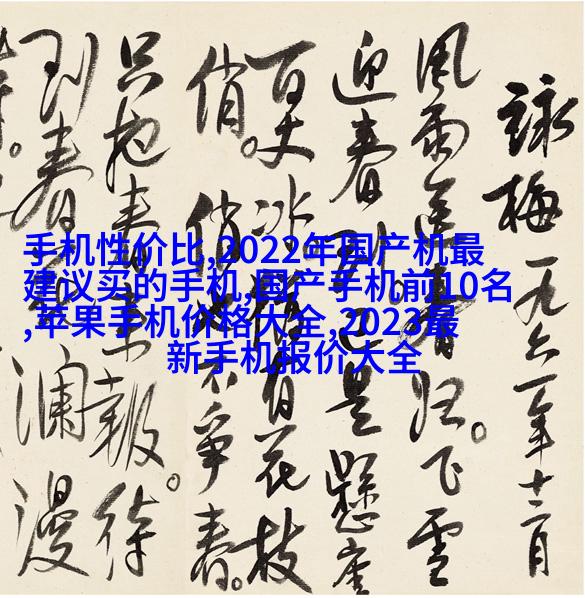 手机性价比,2022年国产机最
建议买的手机,国产手机前10名
,苹果手机价格大全,2023最
新手机报价大全
詠梅一九六一年十二月
風雨送春归。飞雪
迎春到已是懸崖
百丈冰犹有花枝
俏。俏也不爭春。
只把春来報。待
到春瀾漫